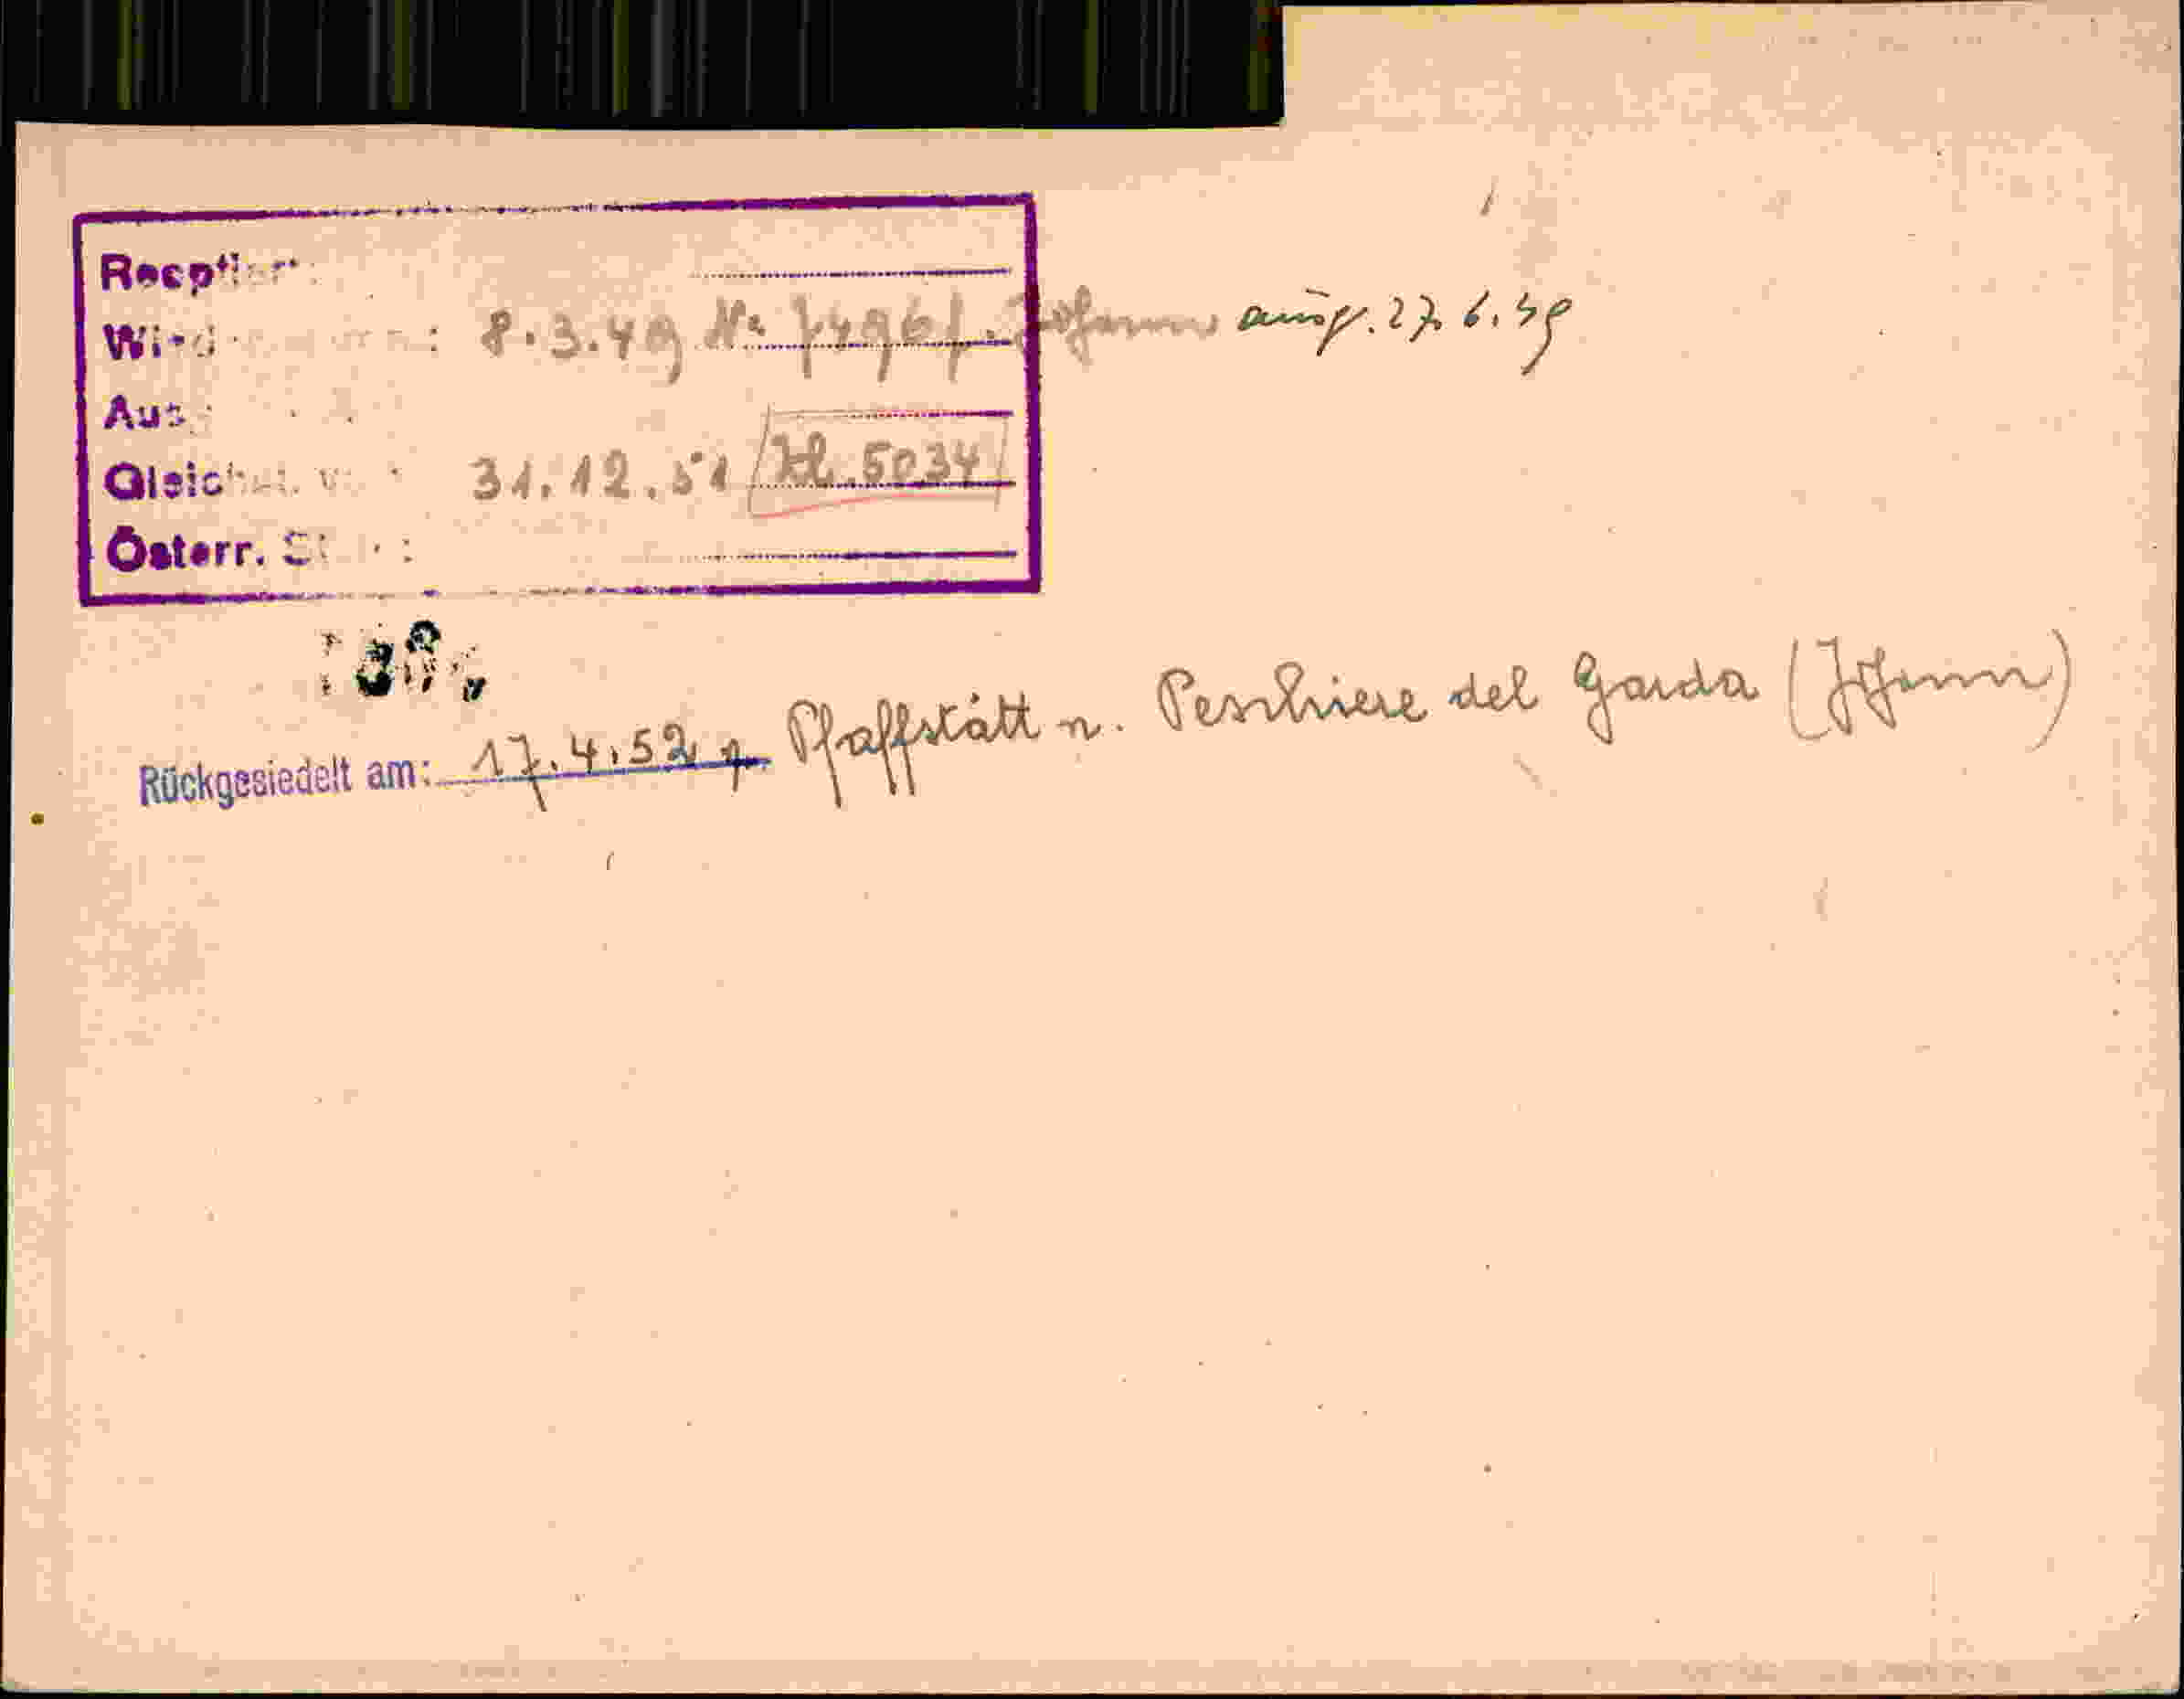 Reoptiert:
: 8.3.49 Nr. 74961. Johann ausg. 27.6.49
Aus
Gleichst. v. : 31.12.51 Kl. 5034
Österr. St. :
Rückgesiedelt am: 17.4.52 v. Pfaffstätt n. Peschiere del Garda (Johann)